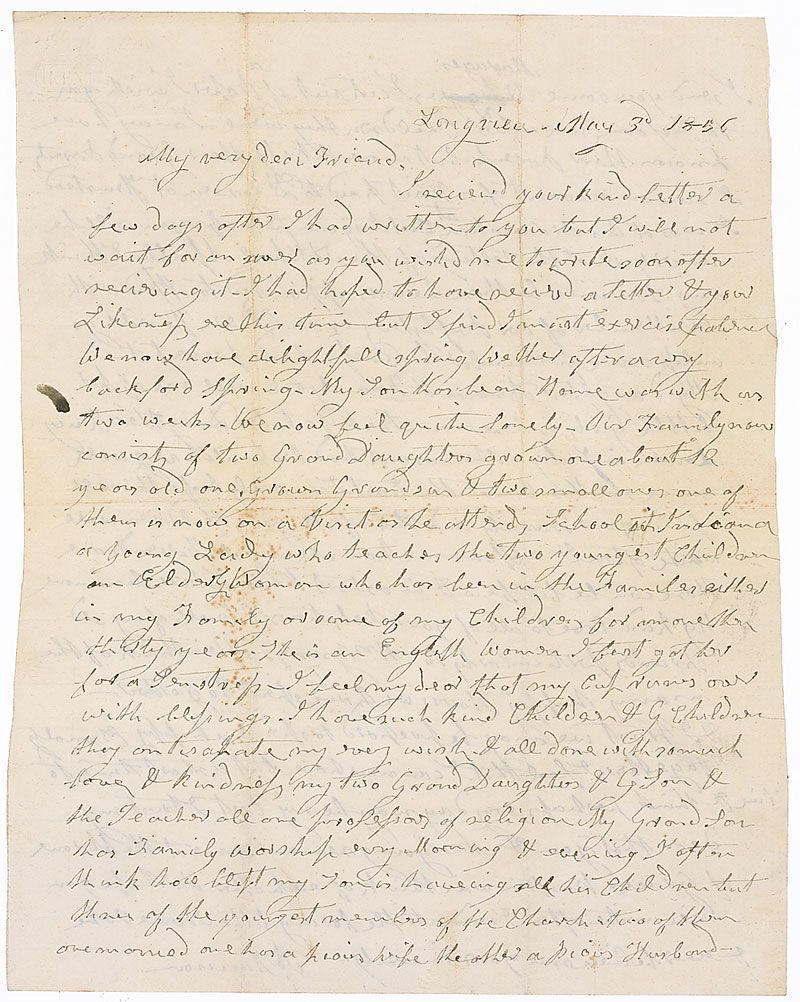 Longview - May 3d 1856
My very dear Friend.
I recievd your kind letter a
few days after I had written to you but I will not
wait for an  as you wishd me to write soon after
recieving it - I had hoped to have recievd a letter & your
Likeness ere this time but I find I must exercise patience
We now have delightfull spring wether after a very
backford Spring - My Son has been Home was with us
two weeks - We now feel quite lonely - Our Family now
consists of two Grand Daughters grown one about 12
years old one Grown Grandson & two small ones one of
them is now on a visit as he attends School in Indiana
a Young Lady who teaches the two youngest Children
an Elderly Woman who has been in the Families either
in my Family or some of my Children for more then
thirty years - She is an English Women I first got her
for a Semstress - I feel my dear that my Cup runs over
with blessings - I have such kind Children & G Children
they antisapate my every wish & all done with so much
love & kindness my two Grand Daughters & G Son &
the Teacher all are professors of religion My Grand Son
has Family worship evry Morning & evening I often
think how blest my Son is haveing all his Children but
three of the youngest members of the Church - two of them
are married one has a pious wife the other a pious Husband -